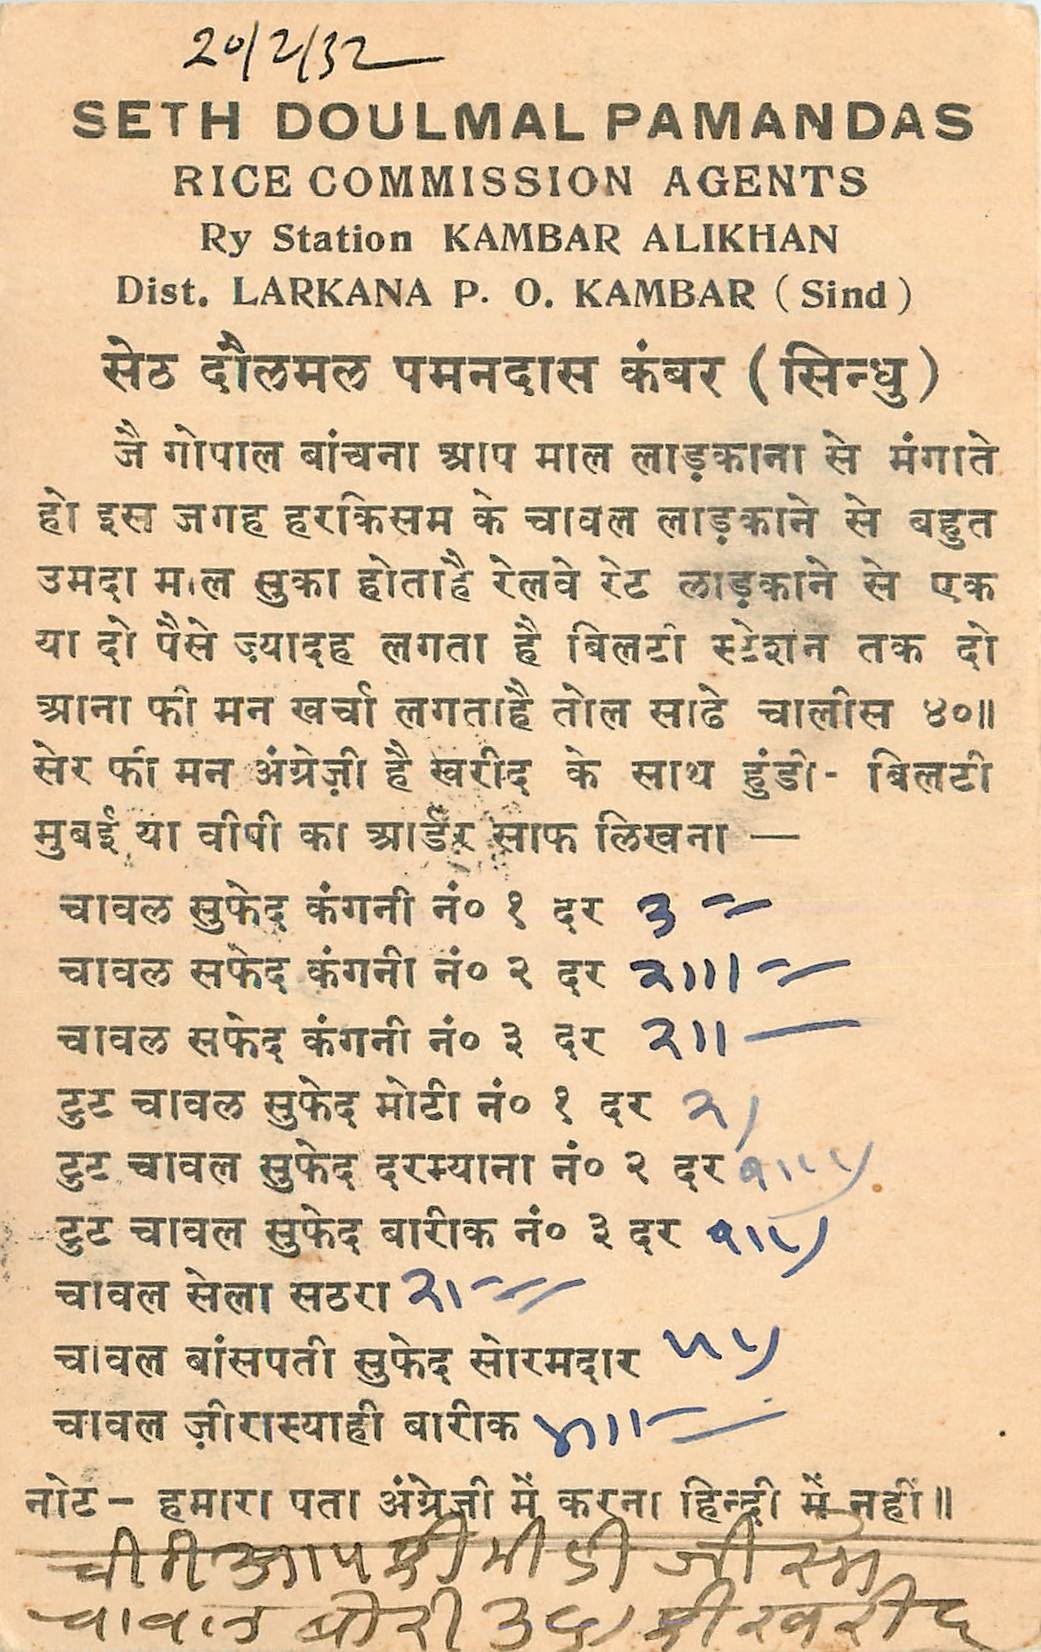 20/2/32
SETH DOULMAL PAMANDAS
RICE COMMISSION AGENTS
Ry Station KAMBAR ALIKHAN
Dist. LARKANA P. O. KAMBAR ( Sind )
सेठ दौलमल पमनदास कंबर ( सिन्धु )
जै गोपाल बांचना आप माल लाड़काना से मंगाते
हो इस जगह हरकिसम के चावल लाड़काने से बहुत
उमदा माल सुका होताहै रेलवे रेट लाड़काने से एक
या दो पैसे ज़्यादह लगता है बिलटी स्टेशन तक दो
आना फी मन खर्चा लगताहै तोल साढे चालीस ४०॥
सेर फी मन अंग्रेज़ी है खरीद के साथ हुंडी- बिलटी
मुबई या वीपी का आर्डर साफ लिखना —
चावल सुफेद कंगनी नं० १ दर
चावल सफेद कंगनी नं० २ दर
चावल सफेद कंगनी नं० ३ दर २॥
टुट चावल सुफेद मोटी नं० १ दर २)
टुट चावल सुफेद दरम्याना नं० २ दर
टुट चावल सुफेद बारीक नं० ३ दर
चावल सेला सठरा
चावल बांसपती सुफेद सोरमदार
चावल ज़ीरास्याही बारीक
नोट - हमारा पता अंग्रेजी में करना हिन्दी में नहीं ॥
आप जी
बोरी खरीद